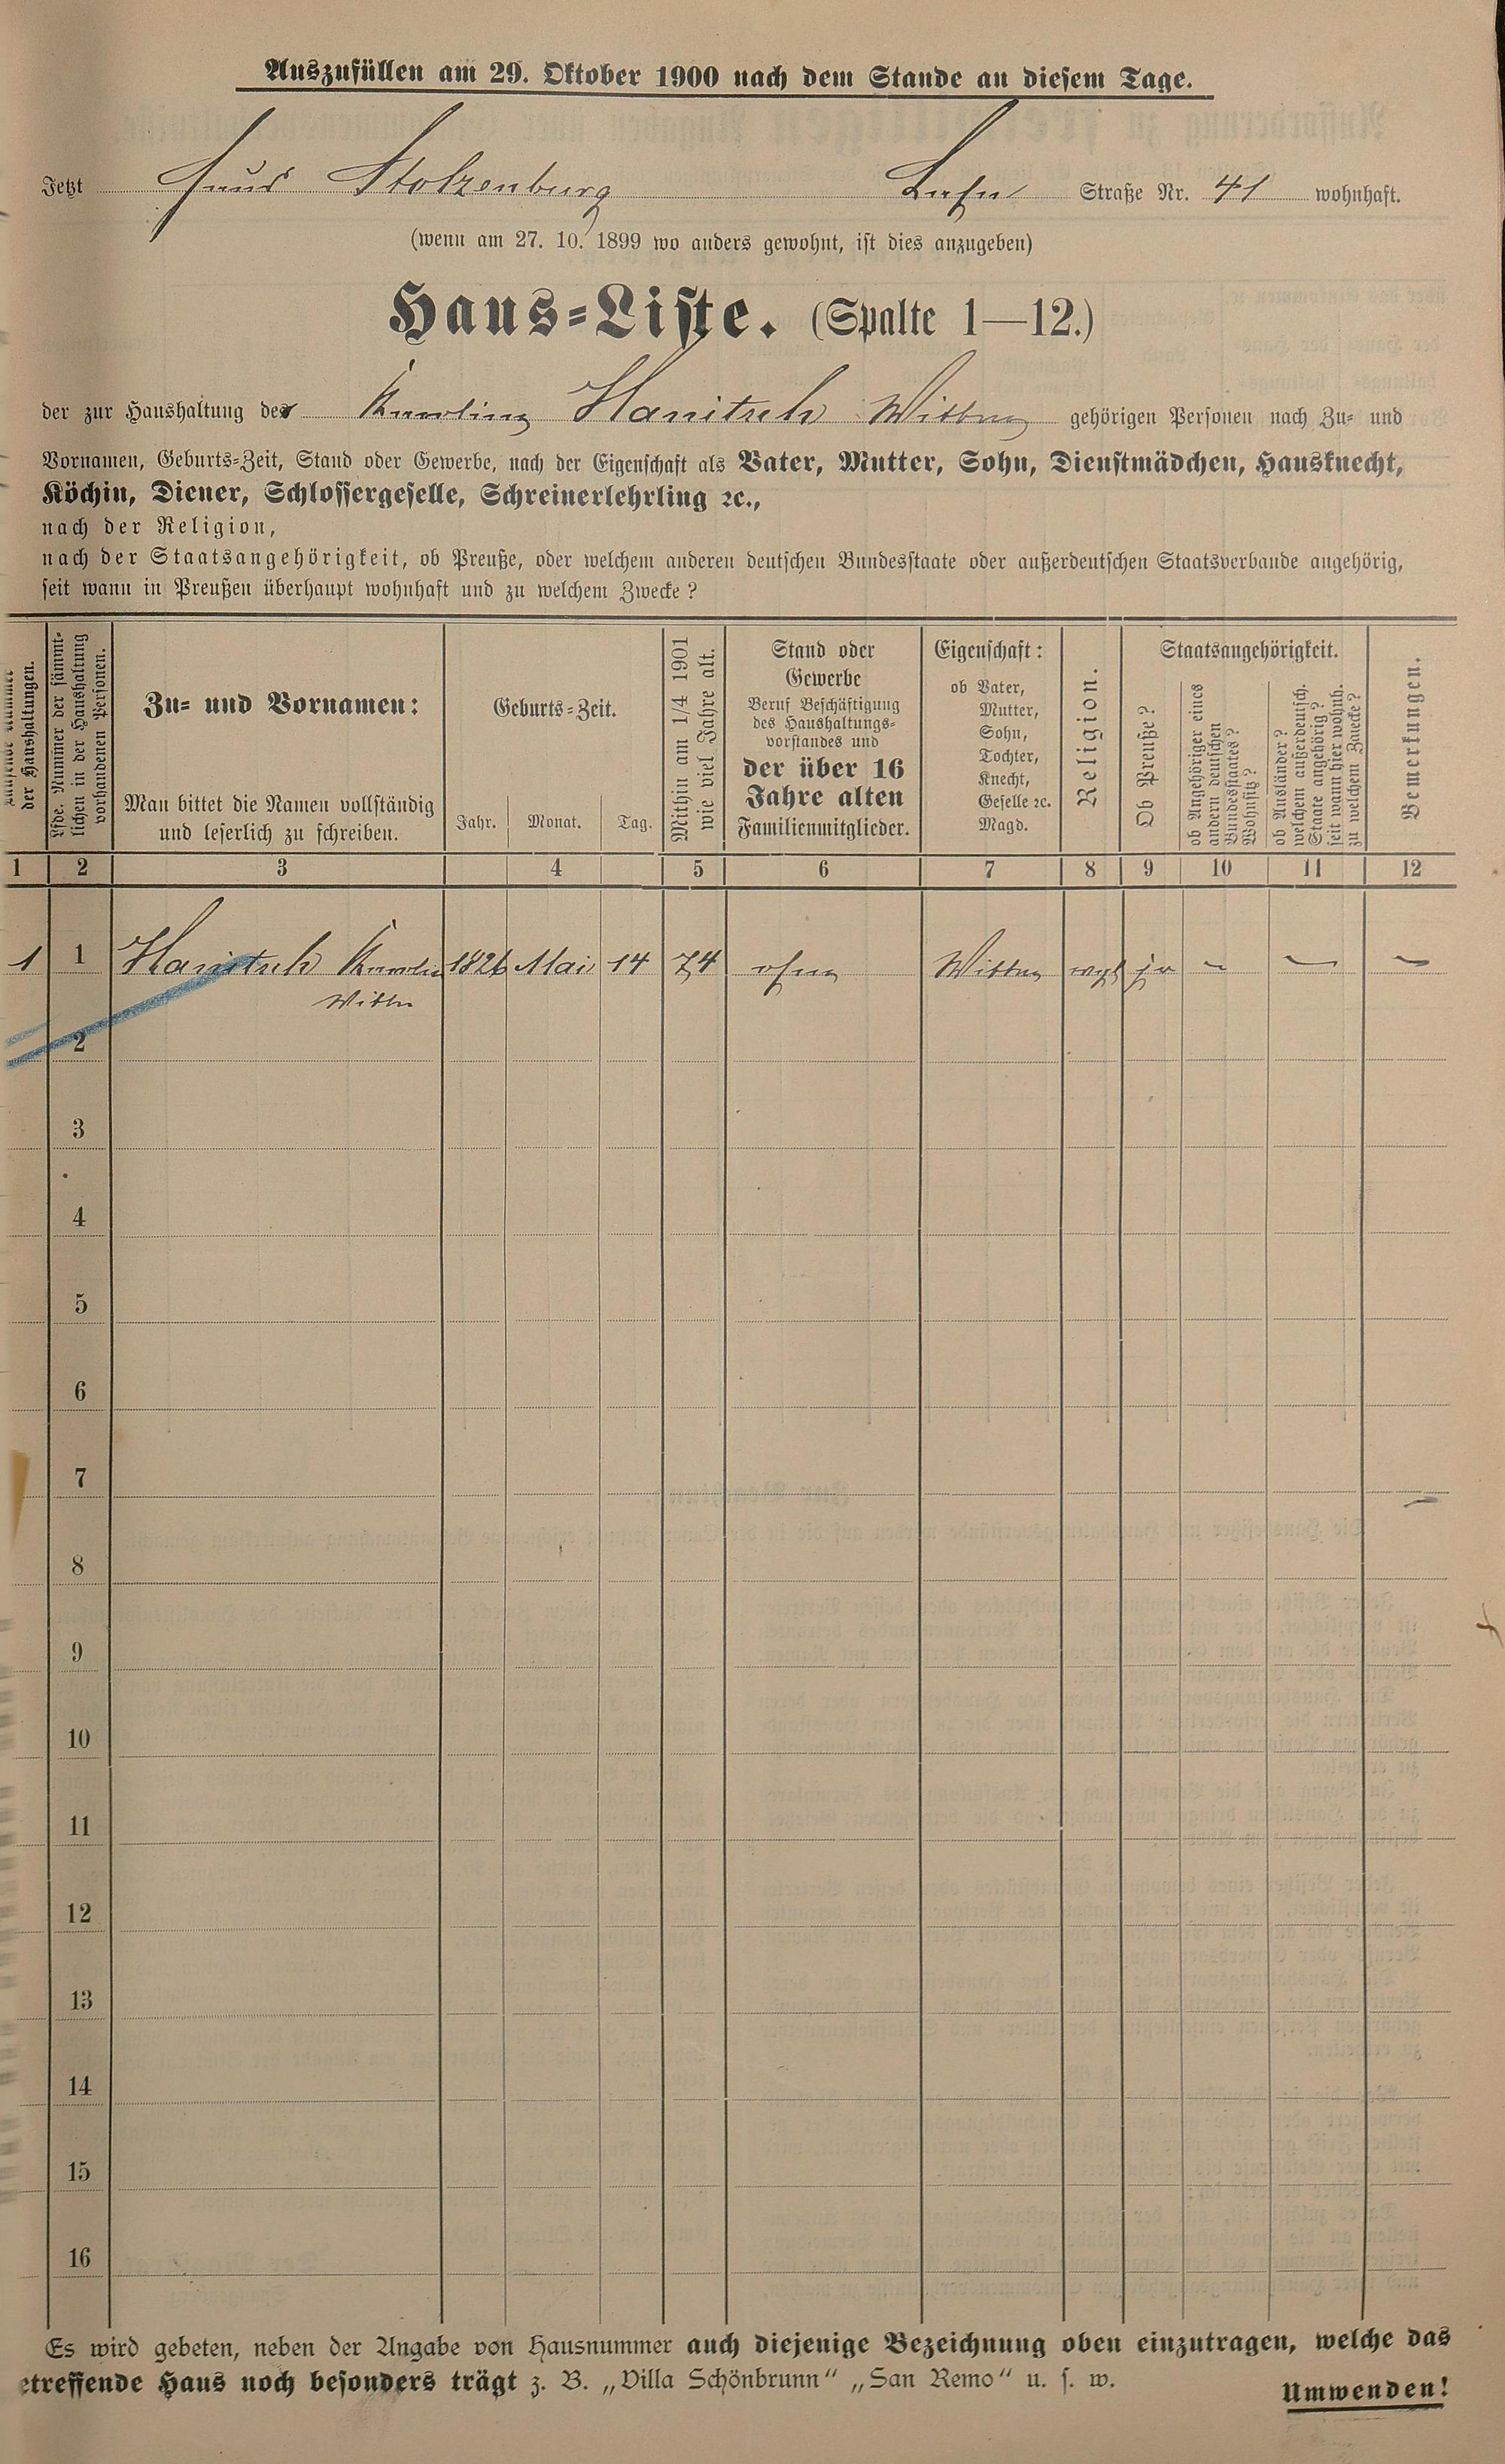 Auszufüllen am 29. Oktober 1900 nach dem Stande an diesem Tage.
Jetzt Haus Stolzenburg Lahn Straße Nr. 41 wohnhaft.
(wenn am 27. 10. 1899 wo anders gewohnt, ist dies anzugeben)
Haus-Liste. (Spalte 1—12.)
der zur Haushaltung der Karoline Hanitsch Wittwe gehörigen Personen nach Zu- und
Vornamen, Geburts-Zeit, Stand oder Gewerbe, nach der Eigenschaft als Vater, Mutter, Sohn, Dienstmädchen, Hausknecht,
Köchin, Diener, Schlossergeselle, Schreinerlehrling ꝛc.,
nach der Religion,
nach der Staatsangehörigkeit, ob Preuße, oder welchem anderen deutschen Bundesstaate oder außerdeutschen Staatsverbande angehörig,
seit wann in Preußen überhaupt wohnhaft und zu welchem Zwecke?
der Haushaltungen.
Lfde. Nummer der sämmt-
lichen in der Haushaltung
vorhandenen Personen.
Zu- und Vornamen:
Man bittet die Namen vollständig
und leserlich zu schreiben.
Geburts-Zeit.
Jahr. Monat. Tag.
Mithin am 1/4 1901
wie viel Jahre alt.
Stand oder
Gewerbe
Beruf Beschäftigung
des Haushaltungs-
vorstandes und
der über 16
Jahre alten
Familienmitglieder.
Eigenschaft:
ob Vater,
Mutter,
Sohn,
Tochter,
Knecht,
Geselle ꝛc.
Magd.
Religion.
Staatsangehörigkeit.
Ob Preuße?
ob Angehöriger eines
andern deutschen
Bundesstaates?
Wohnsitz?
ob Ausländer?
welchem außerdeutsch.
Staate angehörig?
seit wann hier wohnh.
zu welchem Zwecke?
Bemerkungen.
1 2 3 4 5 6 7 8 9 10 11 12
1 1 Hanitsch Karoline 1826 Mai 14 74 ohne Wittwe evgl ja – – –
Wittwe
2
3
4
5
6
7
8
9
10
11
12
13
14
15
16
Es wird gebeten, neben der Angabe von Hausnummer auch diejenige Bezeichnung oben einzutragen, welche das
etreffende Haus noch besonders trägt z. B. „Villa Schönbrunn“ „San Remo“ u. s. w.
Umwenden!